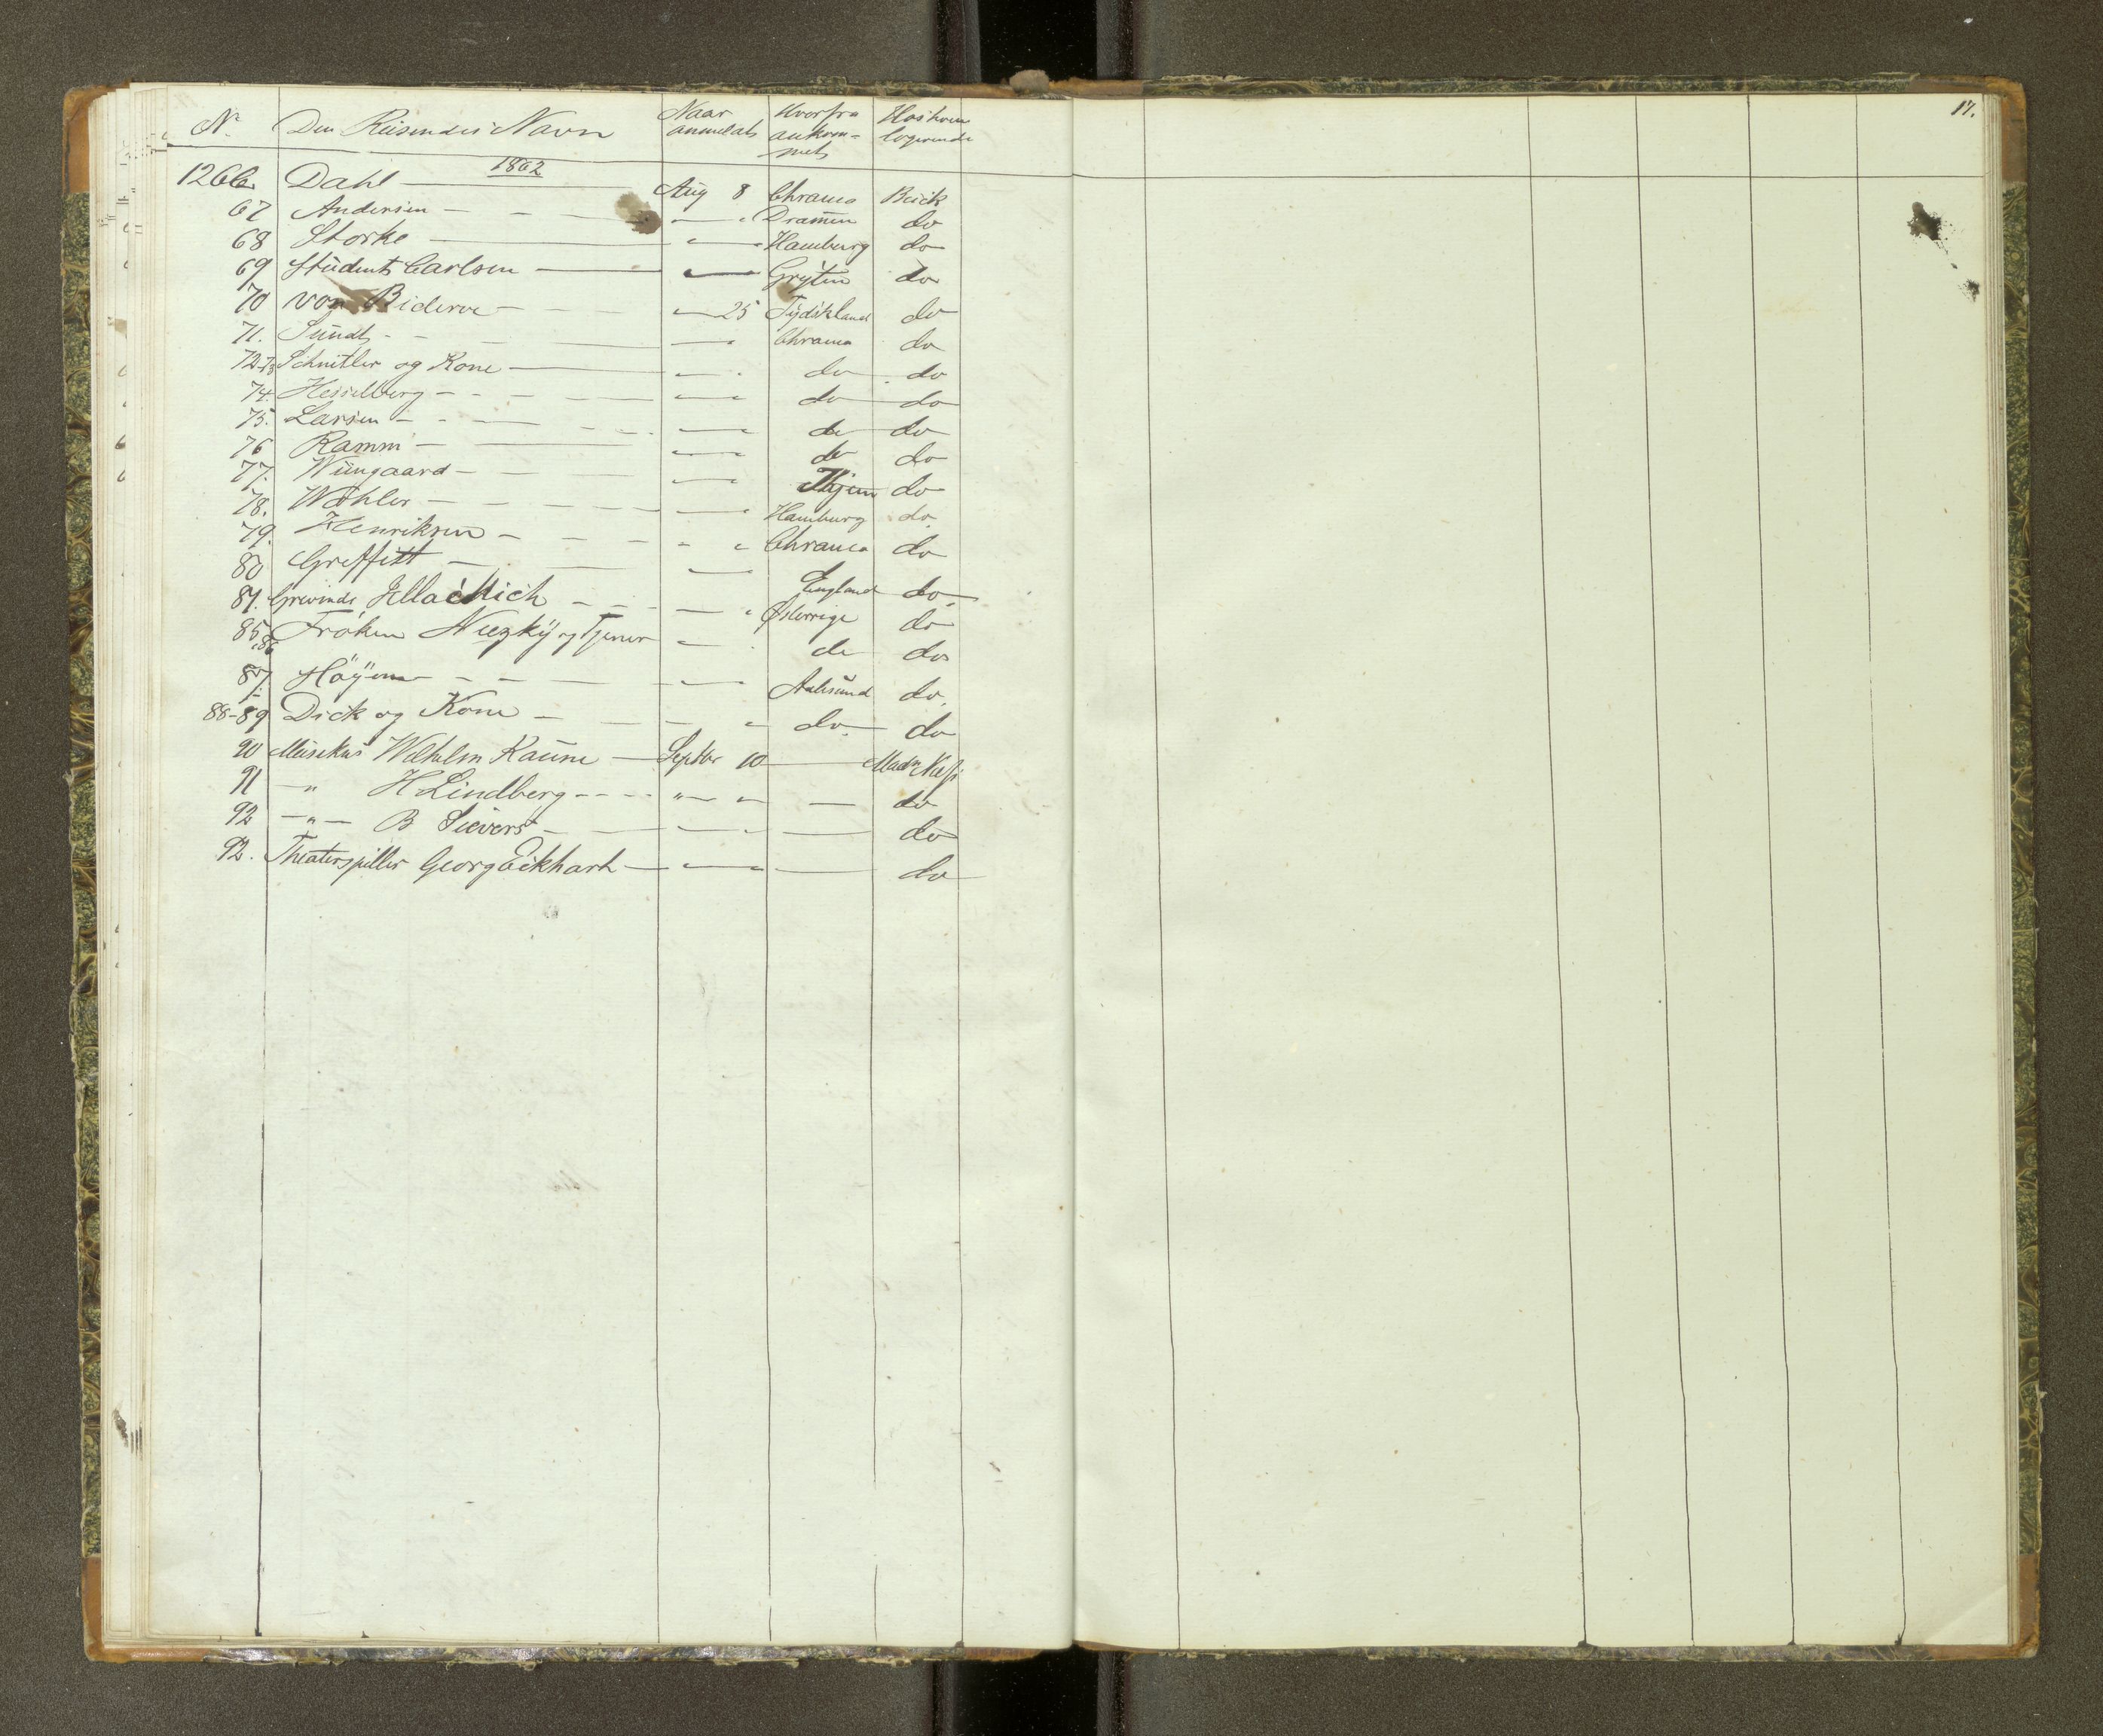 17.
No Den Reisendes Navn Naar anmeldt Hvorfra ankom= met Hos hvem logerende
1862
1266. Dahl Aug 8 Chrania Bück
67 Andersen " Dramen do
68 Storke " Hamburg do
69 Student Carlsen Gryten do
70 von 25 Tydskland do
71. Sundt Chrania do
72-73 Schnitler og Kone do do
74. Hesselberg do do
75. Larsen do do
76 Ramm do do
77. Wüngaard Hjem do
78. Wöhler Hamburg do
79. Henriksen " Chrania do
80 Greffitt England do
81. Grevinde Jellachich " Østerrige do
85,86 Fröken og Tjener do do
87. Höyem Aalesund do.
88-89 Dick og Kone do. do
90 Musikus Wilhelm Kaune Septbr 10 Madm
91 " H Lindberg " " do
92 " B Sievers do
92. Theaterspiller Georg Eckhart do